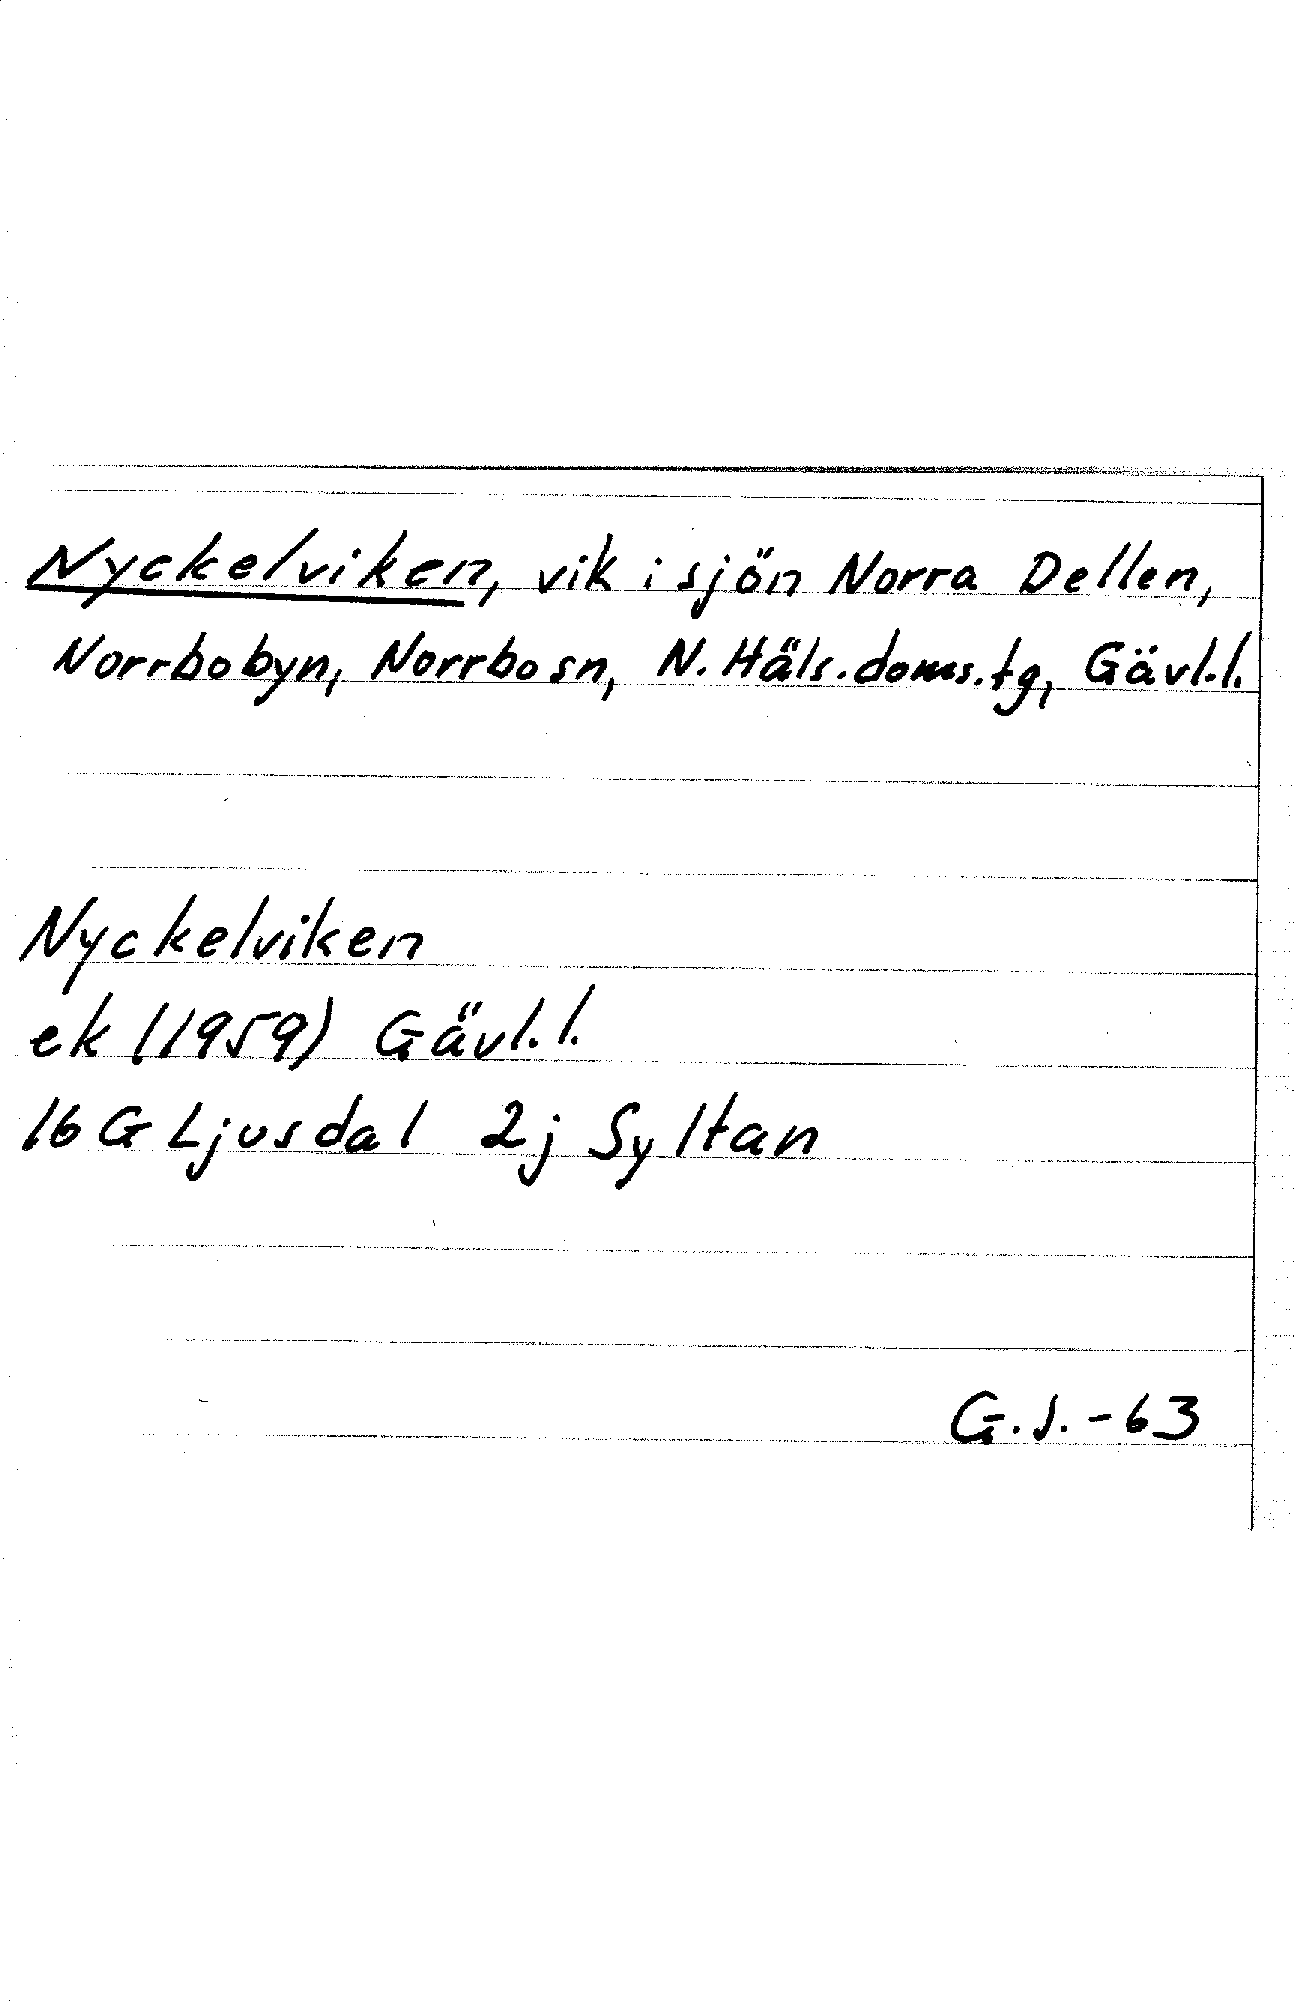 Nyckelviken, vik i sjön Norra Dellen,
Norrbobyn, Norrbo sn, N. Häls. doms. tg, Gävl. l.
Nyckelviken
ek (1959) Gävl. l.
16 G Ljusdal 2j Syltan
G.J. -63